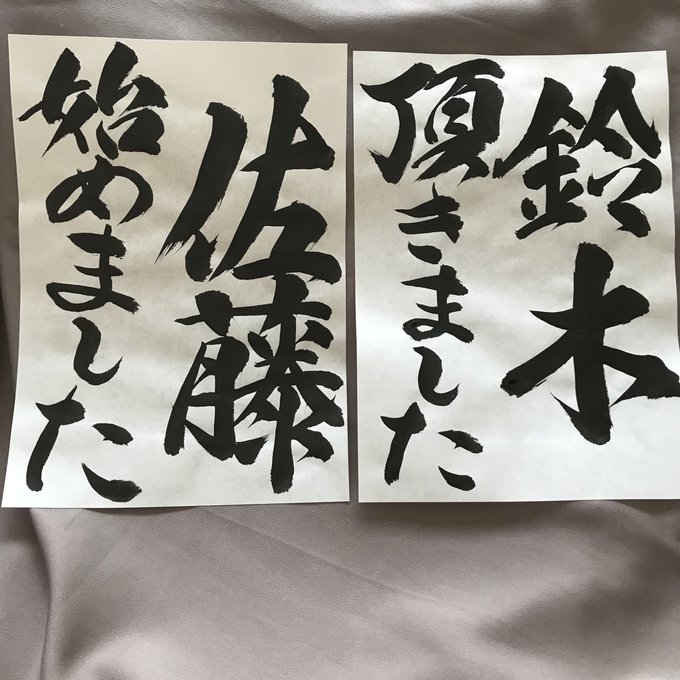 鈴木
頂きました
佐藤
始めました